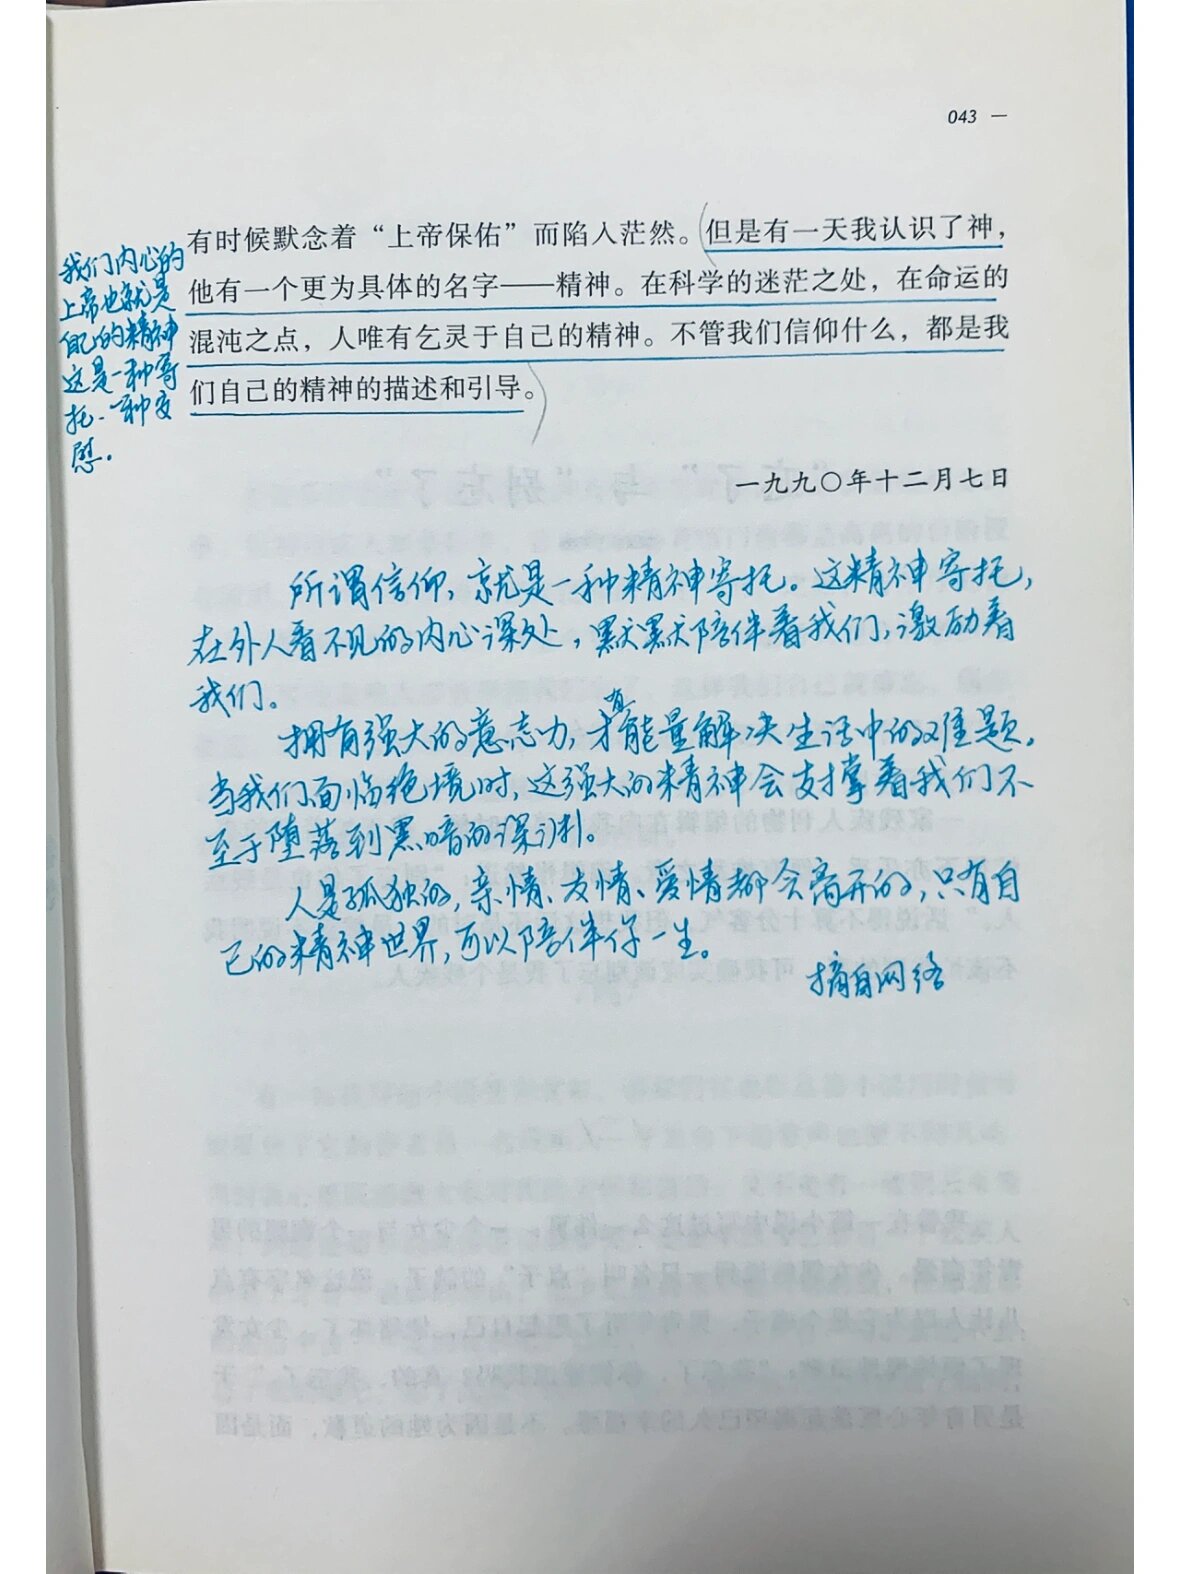 043 —
有时候默念着“上帝保佑”而陷入茫然。但是有一天我认识了神，
他有一个更为具体的名字——精神。在科学的迷茫之处，在命运的
混沌之点，人唯有乞灵于自己的精神。不管我们信仰什么，都是我
们自己的精神的描述和引导。
我们内心的
上帝也就是
自己的精神
这是一种寄
托.一种安
慰.
一九九〇年十二月七日
所谓信仰，就是一种精神寄托。这精神寄托，
在外人看不见的内心深处，默默陪伴着我们，激励着
我们。
拥有强大的意志力，才有能量解决生活中的难题。
当我们面临绝境时，这强大的精神会支撑着我们不
至于堕落到黑暗的深渊。
人是孤独的，亲情、友情、爱情都会离开的，只有自
己的精神世界，可以陪伴你一生。
摘自网络